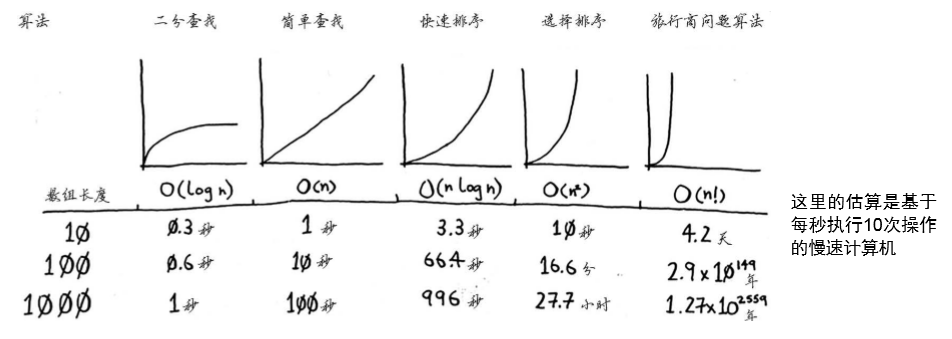 算法 二分查找 简单查找 快速排序 选择排序 旅行商问题算法
数组长度 O(log n) O(n) O(n log n) O(n²) O(n!)
10 0.3秒 1秒 3.3秒 10秒 4.2天
100 0.6秒 10秒 664秒 16.6分 2.9x10¹⁴⁹年
1000 1秒 100秒 996秒 27.7小时 1.27x10²⁵⁵⁹年
这里的估算是基于
每秒执行10次操作
的慢速计算机